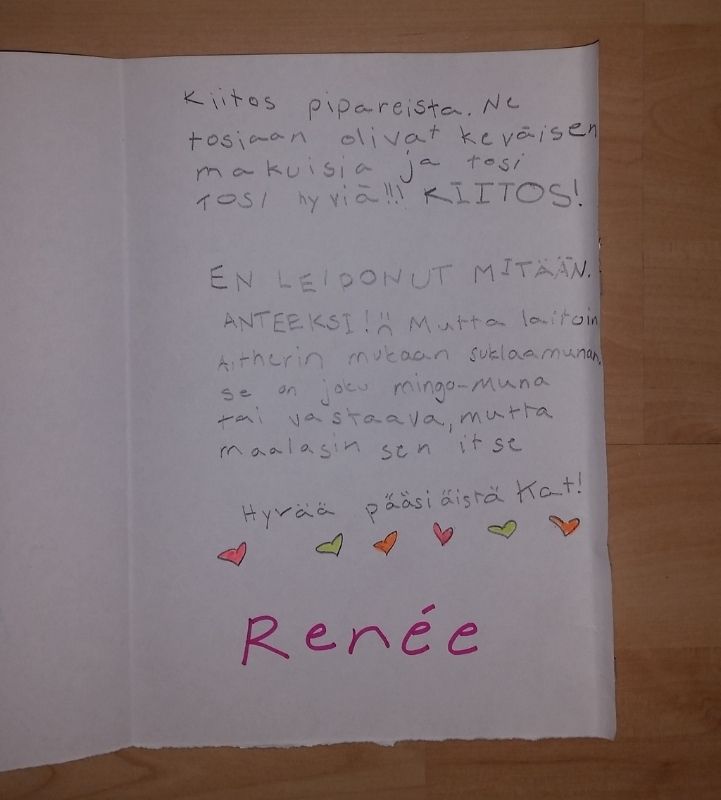 Kiitos pipareista. Ne
tosiaan olivat keväisen
makuisia ja tosi
TOSI hyviä!!! KIITOS!
EN LEIPONUT MITÄÄN.
ANTEEKSI! Mutta laitoin
Aitherin mukaan suklaamunan.
se on joku mingo-muna
tai vastaava, mutta
maalasin sen itse
Hyvää pääsiäistä Kat!
Renée